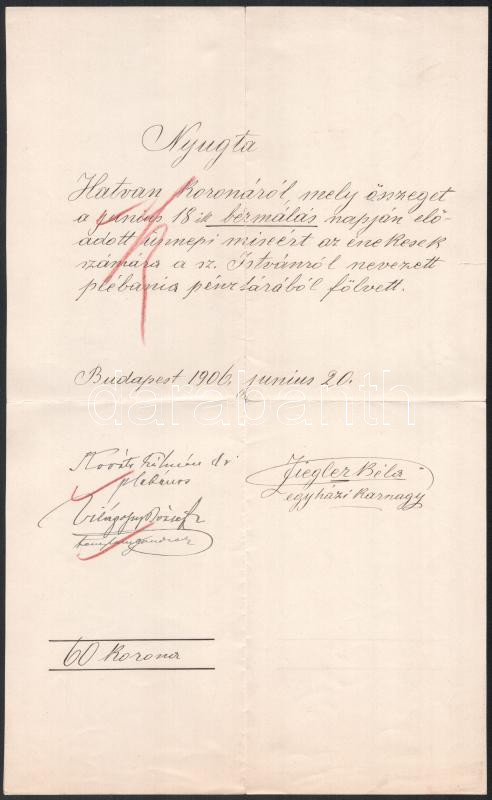 Nyugta
Hatvan koronáról, mely öszeget
a junius 18 iki bérmálás napján elő-
adott ünnepi miséért az énekesek
számára a sz. Istvánról nevezett
plébánia pénztárából fölvett.
Budapest 1906. junius 20.
Kováts Kálmán dr
plébános
Ziegler Béla
egyházi karnagy
Világossy József
60 korona
darabanth